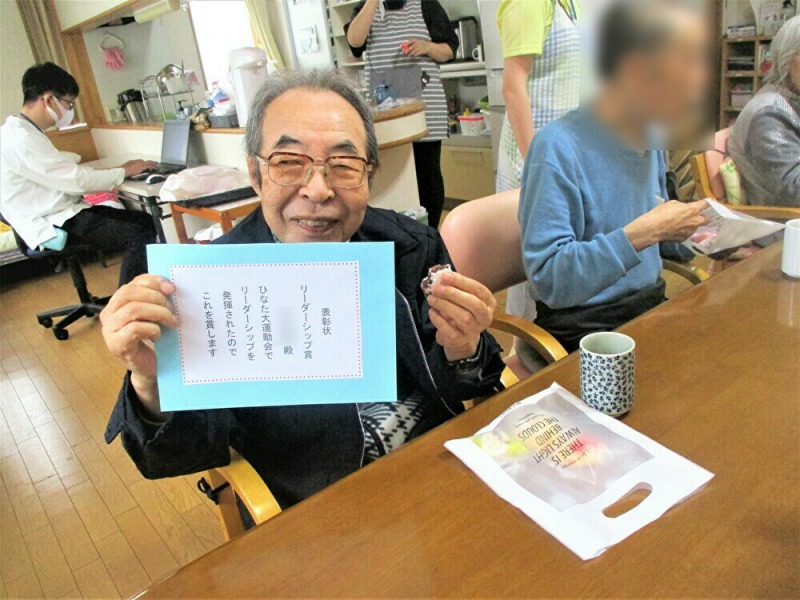 表彰状
リーダーシップ賞
殿
ひなた大運動会で
リーダーシップを
発揮されたので
これを賞します
THERE IS
ALWAYS LIGHT
BEHIND
THE CLOUDS